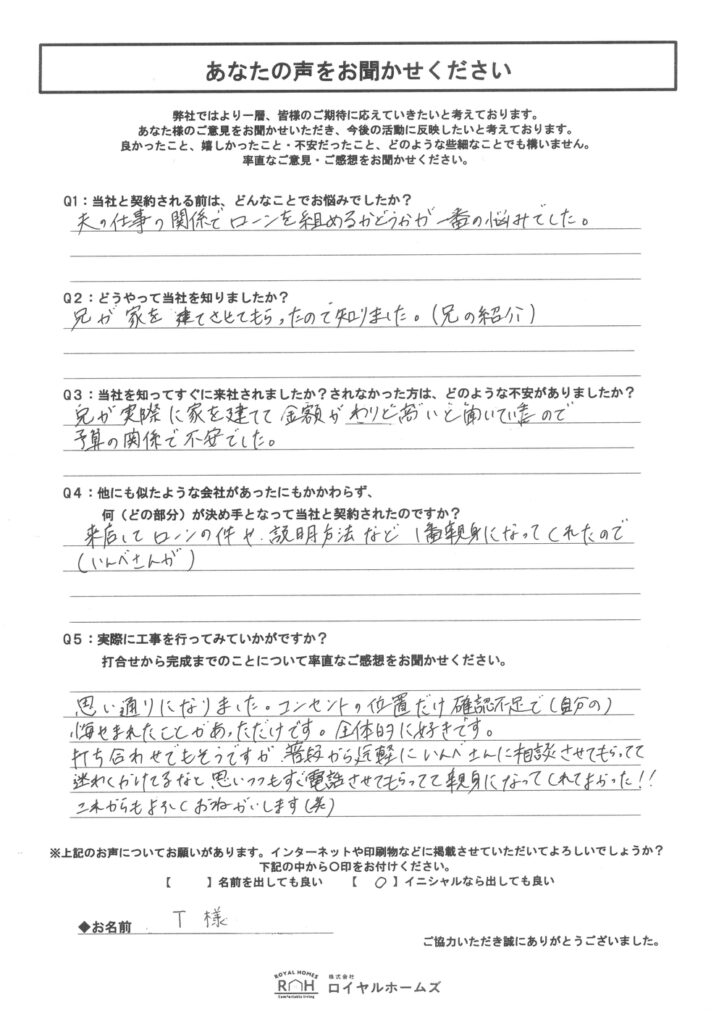 あなたの声をお聞かせください
弊社ではより一層、皆様のご期待に応えていきたいと考えております。
あなた様のご意見をお聞かせいただき、今後の活動に反映したいと考えております。
良かったこと、嬉しかったこと・不安だったこと、どのような些細なことでも構いません。
率直なご意見・ご感想をお聞かせください。
Q1：当社と契約される前は、どんなことでお悩みでしたか？
夫の仕事の関係でローンを組めるかどうかが一番の悩みでした。
Q2：どうやって当社を知りましたか？
兄が家を建てさせてもらったので知りました。(兄の紹介)
Q3：当社を知ってすぐに来社されましたか？されなかった方は、どのような不安がありましたか？
兄が実際に家を建てて金額がわりと高いと聞いていたので
予算の関係で不安でした。
Q4：他にも似たような会社があったにもかかわらず、
何（どの部分）が決め手となって当社と契約されたのですか？
来店してローンの件や説明方法など1番親身になってくれたので
(いんべさんが)
Q5：実際に工事を行ってみていかがですか？
打合せから完成までのことについて率直なご感想をお聞かせください。
思い通りになりました。コンセントの位置だけ確認不足で(自分の)
悔やまれたことがあっただけです。全体的に好きです。
打ち合わせでもそうですが普段から気軽にいんべさんに相談させてもらってて
迷わくかけてるなと思いつつもすぐ電話させてもらってて親身になってくれてよかった!!
これからもよろしくおねがいします(笑)
※上記のお声についてお願いがあります。インターネットや印刷物などに掲載させていただいてよろしいでしょうか？
下記の中から〇印をお付けください。
【　　】名前を出しても良い　【　○】イニシャルなら出しても良い
◆お名前　T 様
ご協力いただき誠にありがとうございました。
ROYAL HOMES
RH
Comfortable living
株式会社
ロイヤルホームズ